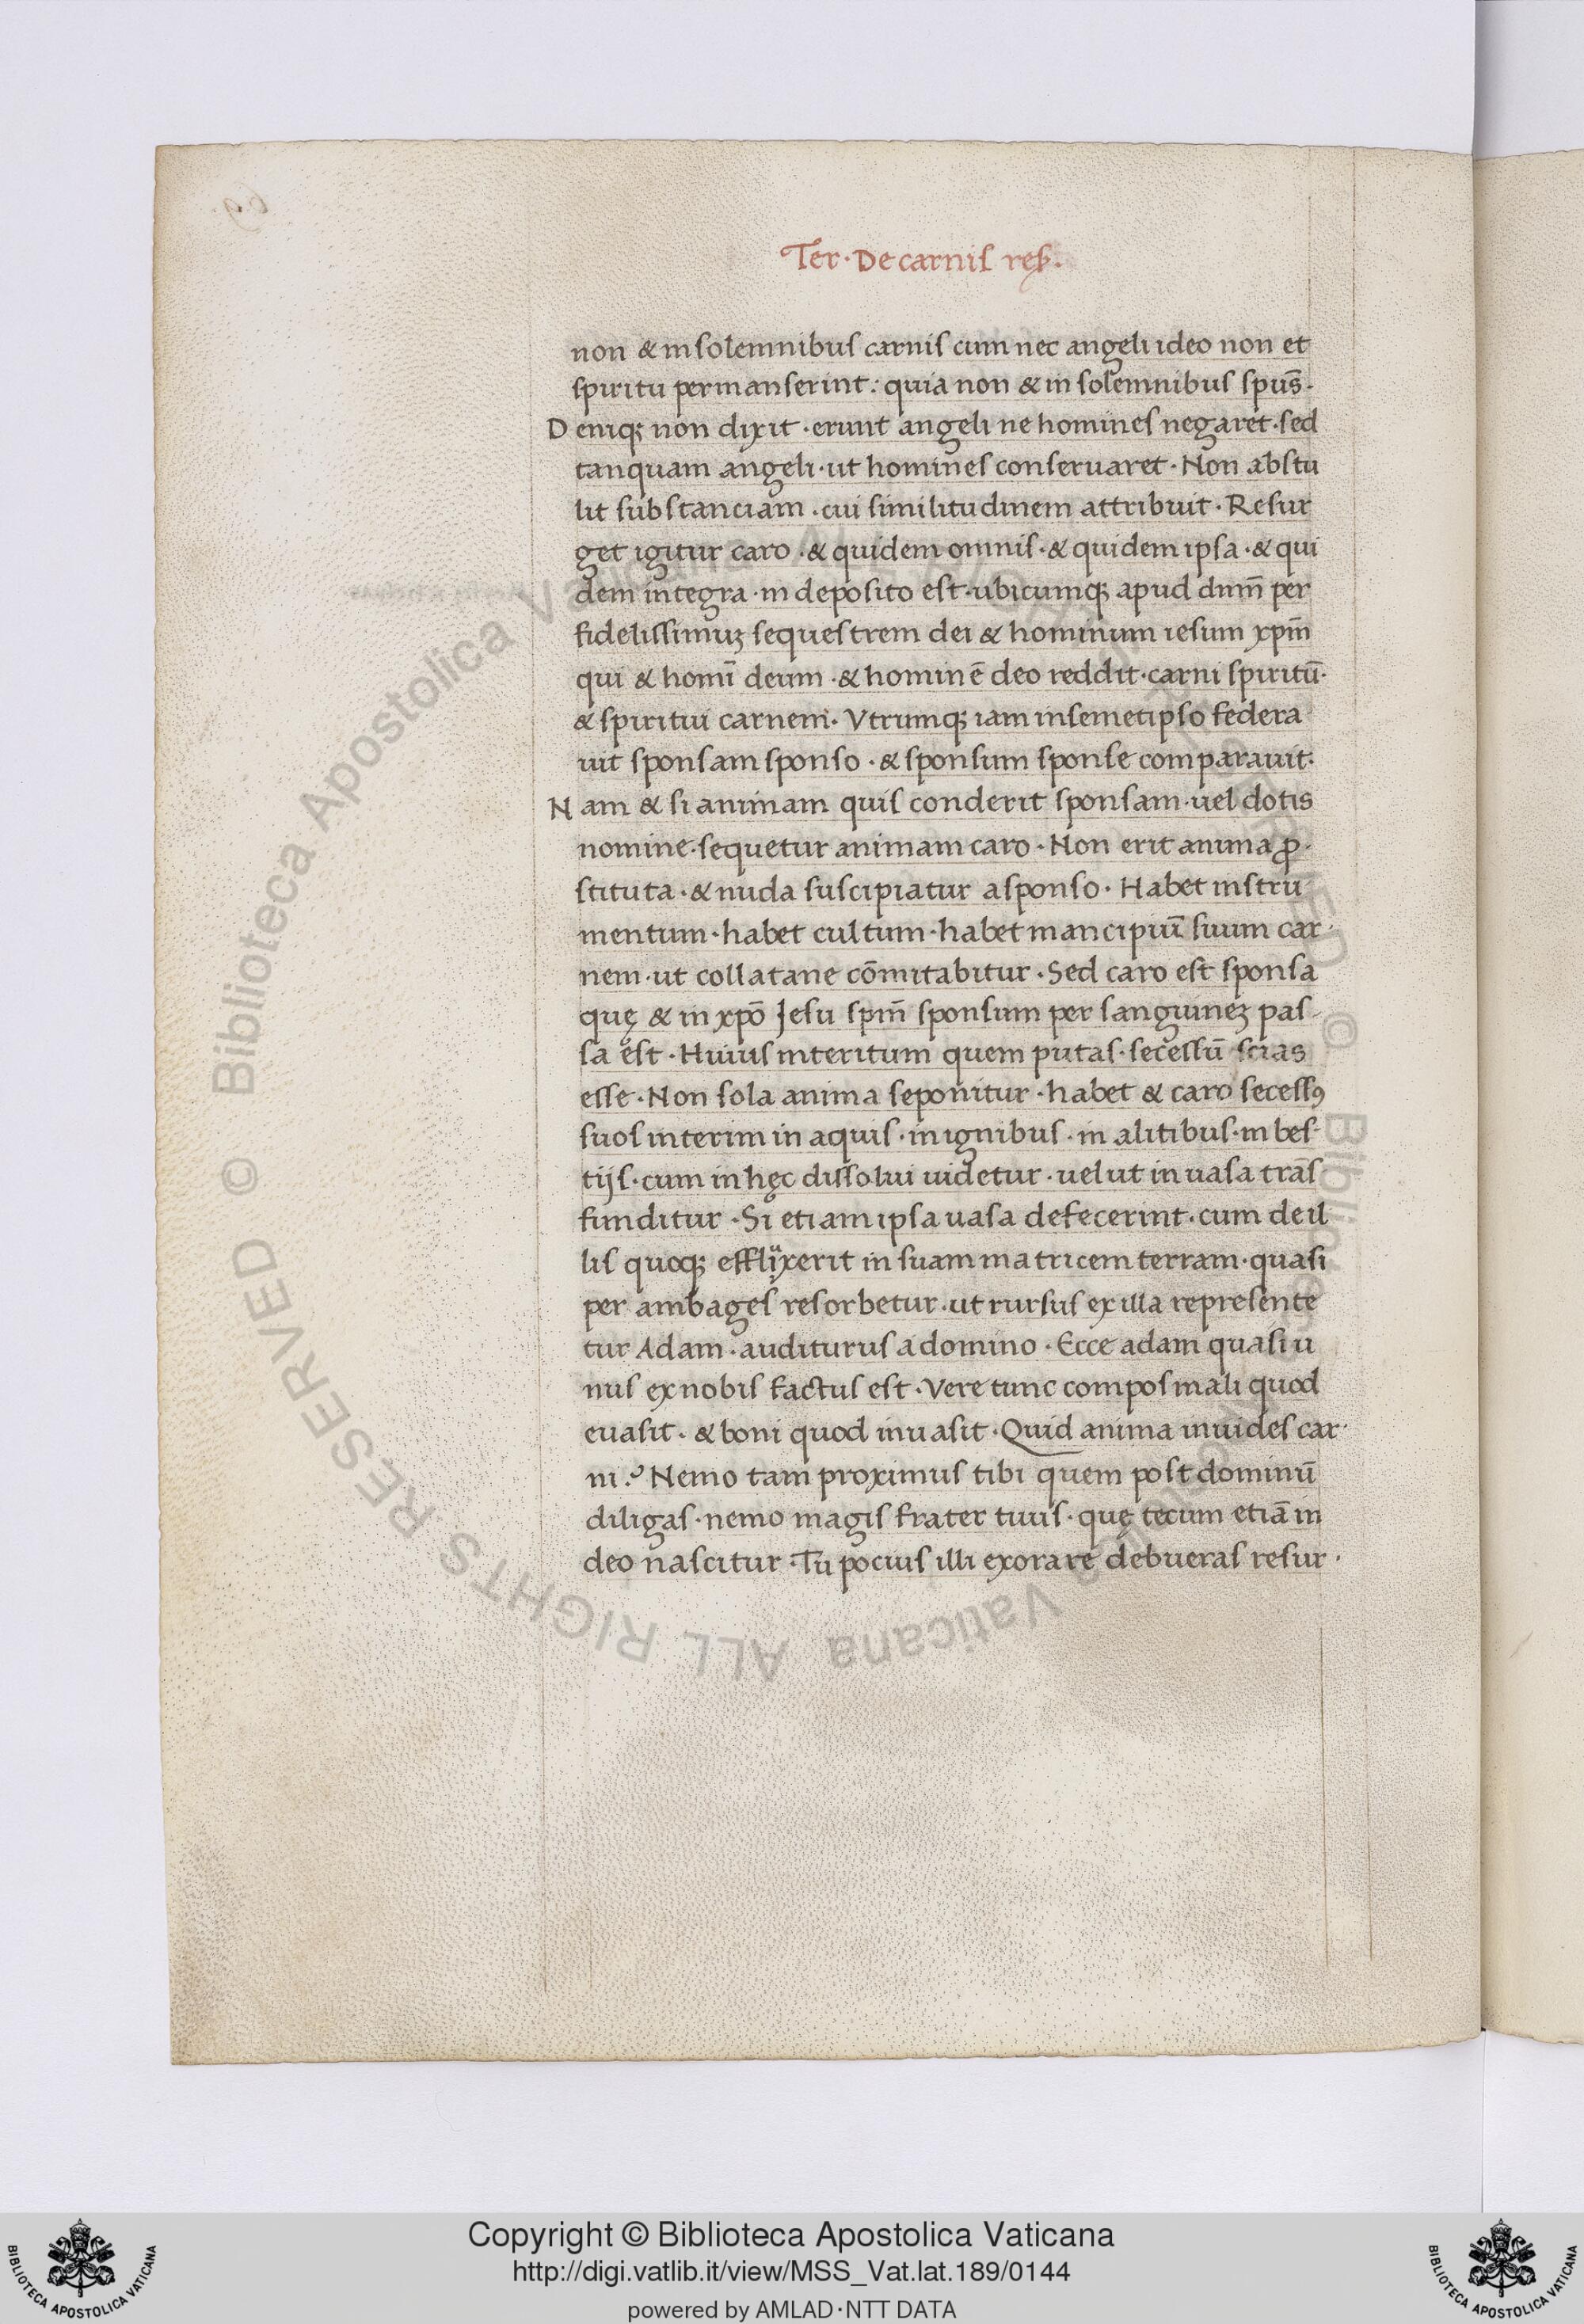 Ter · De carnis ręs.
non & in solemnibus carnis cum nec angeli ideo non et
spiritu permanserint : quia non & in solemnibus spūs ·
Deniqꝫ non dixit · erunt angeli ne homines negaret · sed
tanquam angeli · ut homines conseruaret · Non abstu
lit substanciam · cui similitudinem attribuit · Resur
get igitur caro · & quidem omnis · & quidem ipsa · & qui
dem integra · in deposito est · ubicumqꝫ apud dnm̄ per
fidelissimuꝫ sequestrem dei & hominum iesum xpm̄
qui & homī deum · & hominē deo reddit · carni spiritū ·
& spiritui carnem · Vtrumqꝫ iam in semetipso federa
uit sponsam sponso · & sponsum sponse comparauit ·
Nam & si animam quis conderit sponsam · uel dotis
nomine · sequetur animam caro · Non erit anima ꝓ ·
stituta · & nuda suscipiatur a sponso · Habet instru
mentum · habet cultum · habet mancipiuī suum car ·
nem · ut collatane cōmitabitur · Sed caro est sponsa
quę & in xpō Jesu spm̄ sponsum per sanguineꝫ pas-
sa est · Huius interitum quem putas · secessū scias
esse · Non sola anima seponitur · habet & caro secessꝰ
suos interim in aquis · in ignibus · in alitibus · in bes-
tijs · cum in hęc dissolui uidetur · uelut in uasa trās
funditur · Si etiam ipsa uasa defecerint · cum de il
lis quoqꝫ effluxerit in suam matricem terram · quasi
per ambages resorbetur · ut rursus ex illa represente
tur Adam · auditurus a domino · Ecce adam quasi u
nus ex nobis factus est · Vere tunc compos mali quod
euasit · & boni quod inuasit · Quid anima inuides car ·
ni ? Nemo tam proximus tibi quem post dominū
diligas · nemo magis frater tuus · quę tecum etiā in
deo nascitur · Tu pocius illi exorare debueras resur ·
© Biblioteca Apostolica Vaticana ALL RIGHTS RESERVED © Biblioteca Apostolica Vaticana ALL RIGHTS RESERVED
Copyright © Biblioteca Apostolica Vaticana
http://digi.vatlib.it/view/MSS_Vat.lat.189/0144
powered by AMLAD · NTT DATA
BIBLIOTECA APOSTOLICA VATICANA
BIBLIOTECA APOSTOLICA VATICANA